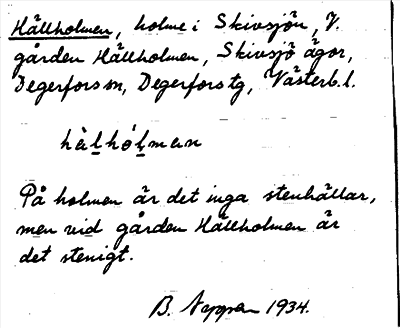 Hällholmen, holme i Skivsjön, V.
gården Hällholmen, Skivsjö ägor,
Degerfors sn, Degerfors tg, Västerb. l.
hälhólman
På holmen är det inga stenhällar,
men vid gården Hällholmen är
det stenigt.
B. 1934.